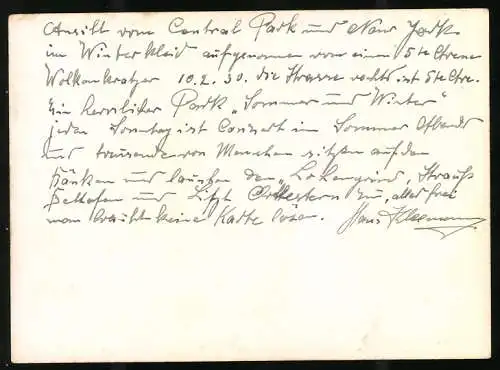 Ansicht vom Central Park und New York
im Winterkleid aufgenommen von einem 5te Avenue
Wolkenkratzer 10.2.30. die Strasse rechts ist 5te Ave.
Ein herrlicher Park „Sommer und Winter"
jeden Sonntag ist Conzert im Sommer Abends
und tausende von Menschen sitzen auf den
Bänken und lauschen den „Lohengrind, Strauß
Bethofen und Litzt Orchestern zu, alles frei
man braucht keine Karte lösen. Hans